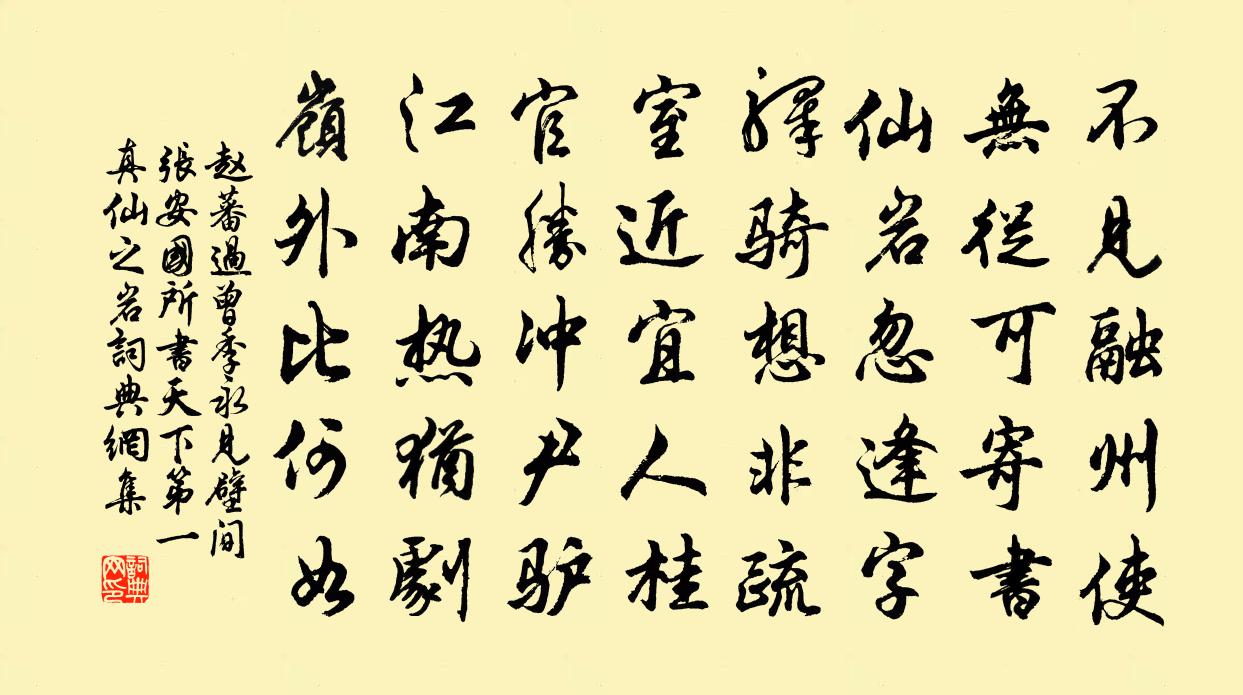 不見融州使
無從可寄書
仙岩忽逢字
驛騎想非疏
室近宜人桂
官勝冲尹驴
江南热猶劇
嶺外比何如
赵蕃過曾季永見壁间
張安國所書天下第一
真仙之岩詞典網集
詞典网印